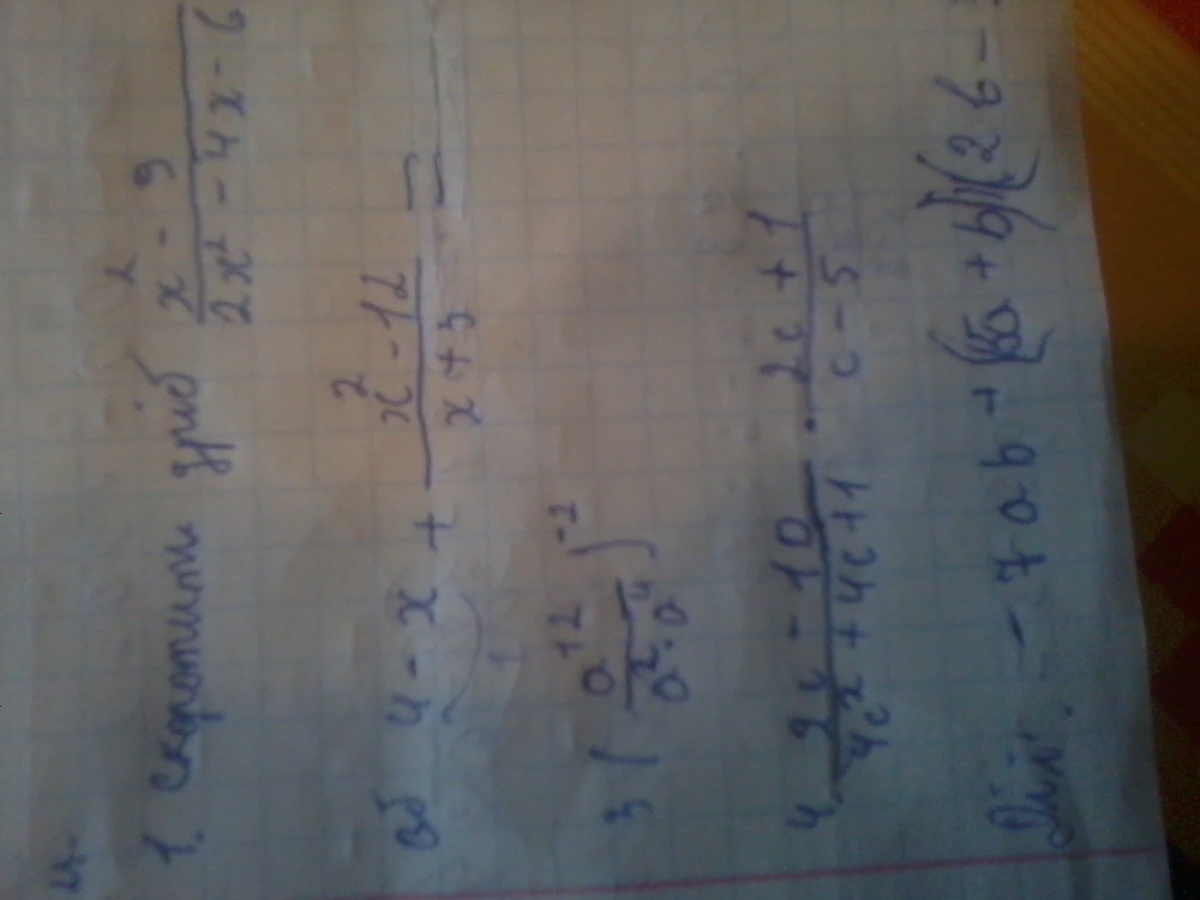 и.
1. Скоротити дріб \frac{x^2 - 9}{2x^2 - 4x - 6}
4 - x + \frac{x^2 - 12}{x + 3} =
1
3 ( \frac{a^{12}}{a^2 \cdot a^4} )^{-2}
4. \frac{2c - 10}{4c^2 + 4c + 1} \cdot \frac{2c + 1}{c - 5}
Дії. - 7ab + (5a + b)(2b -